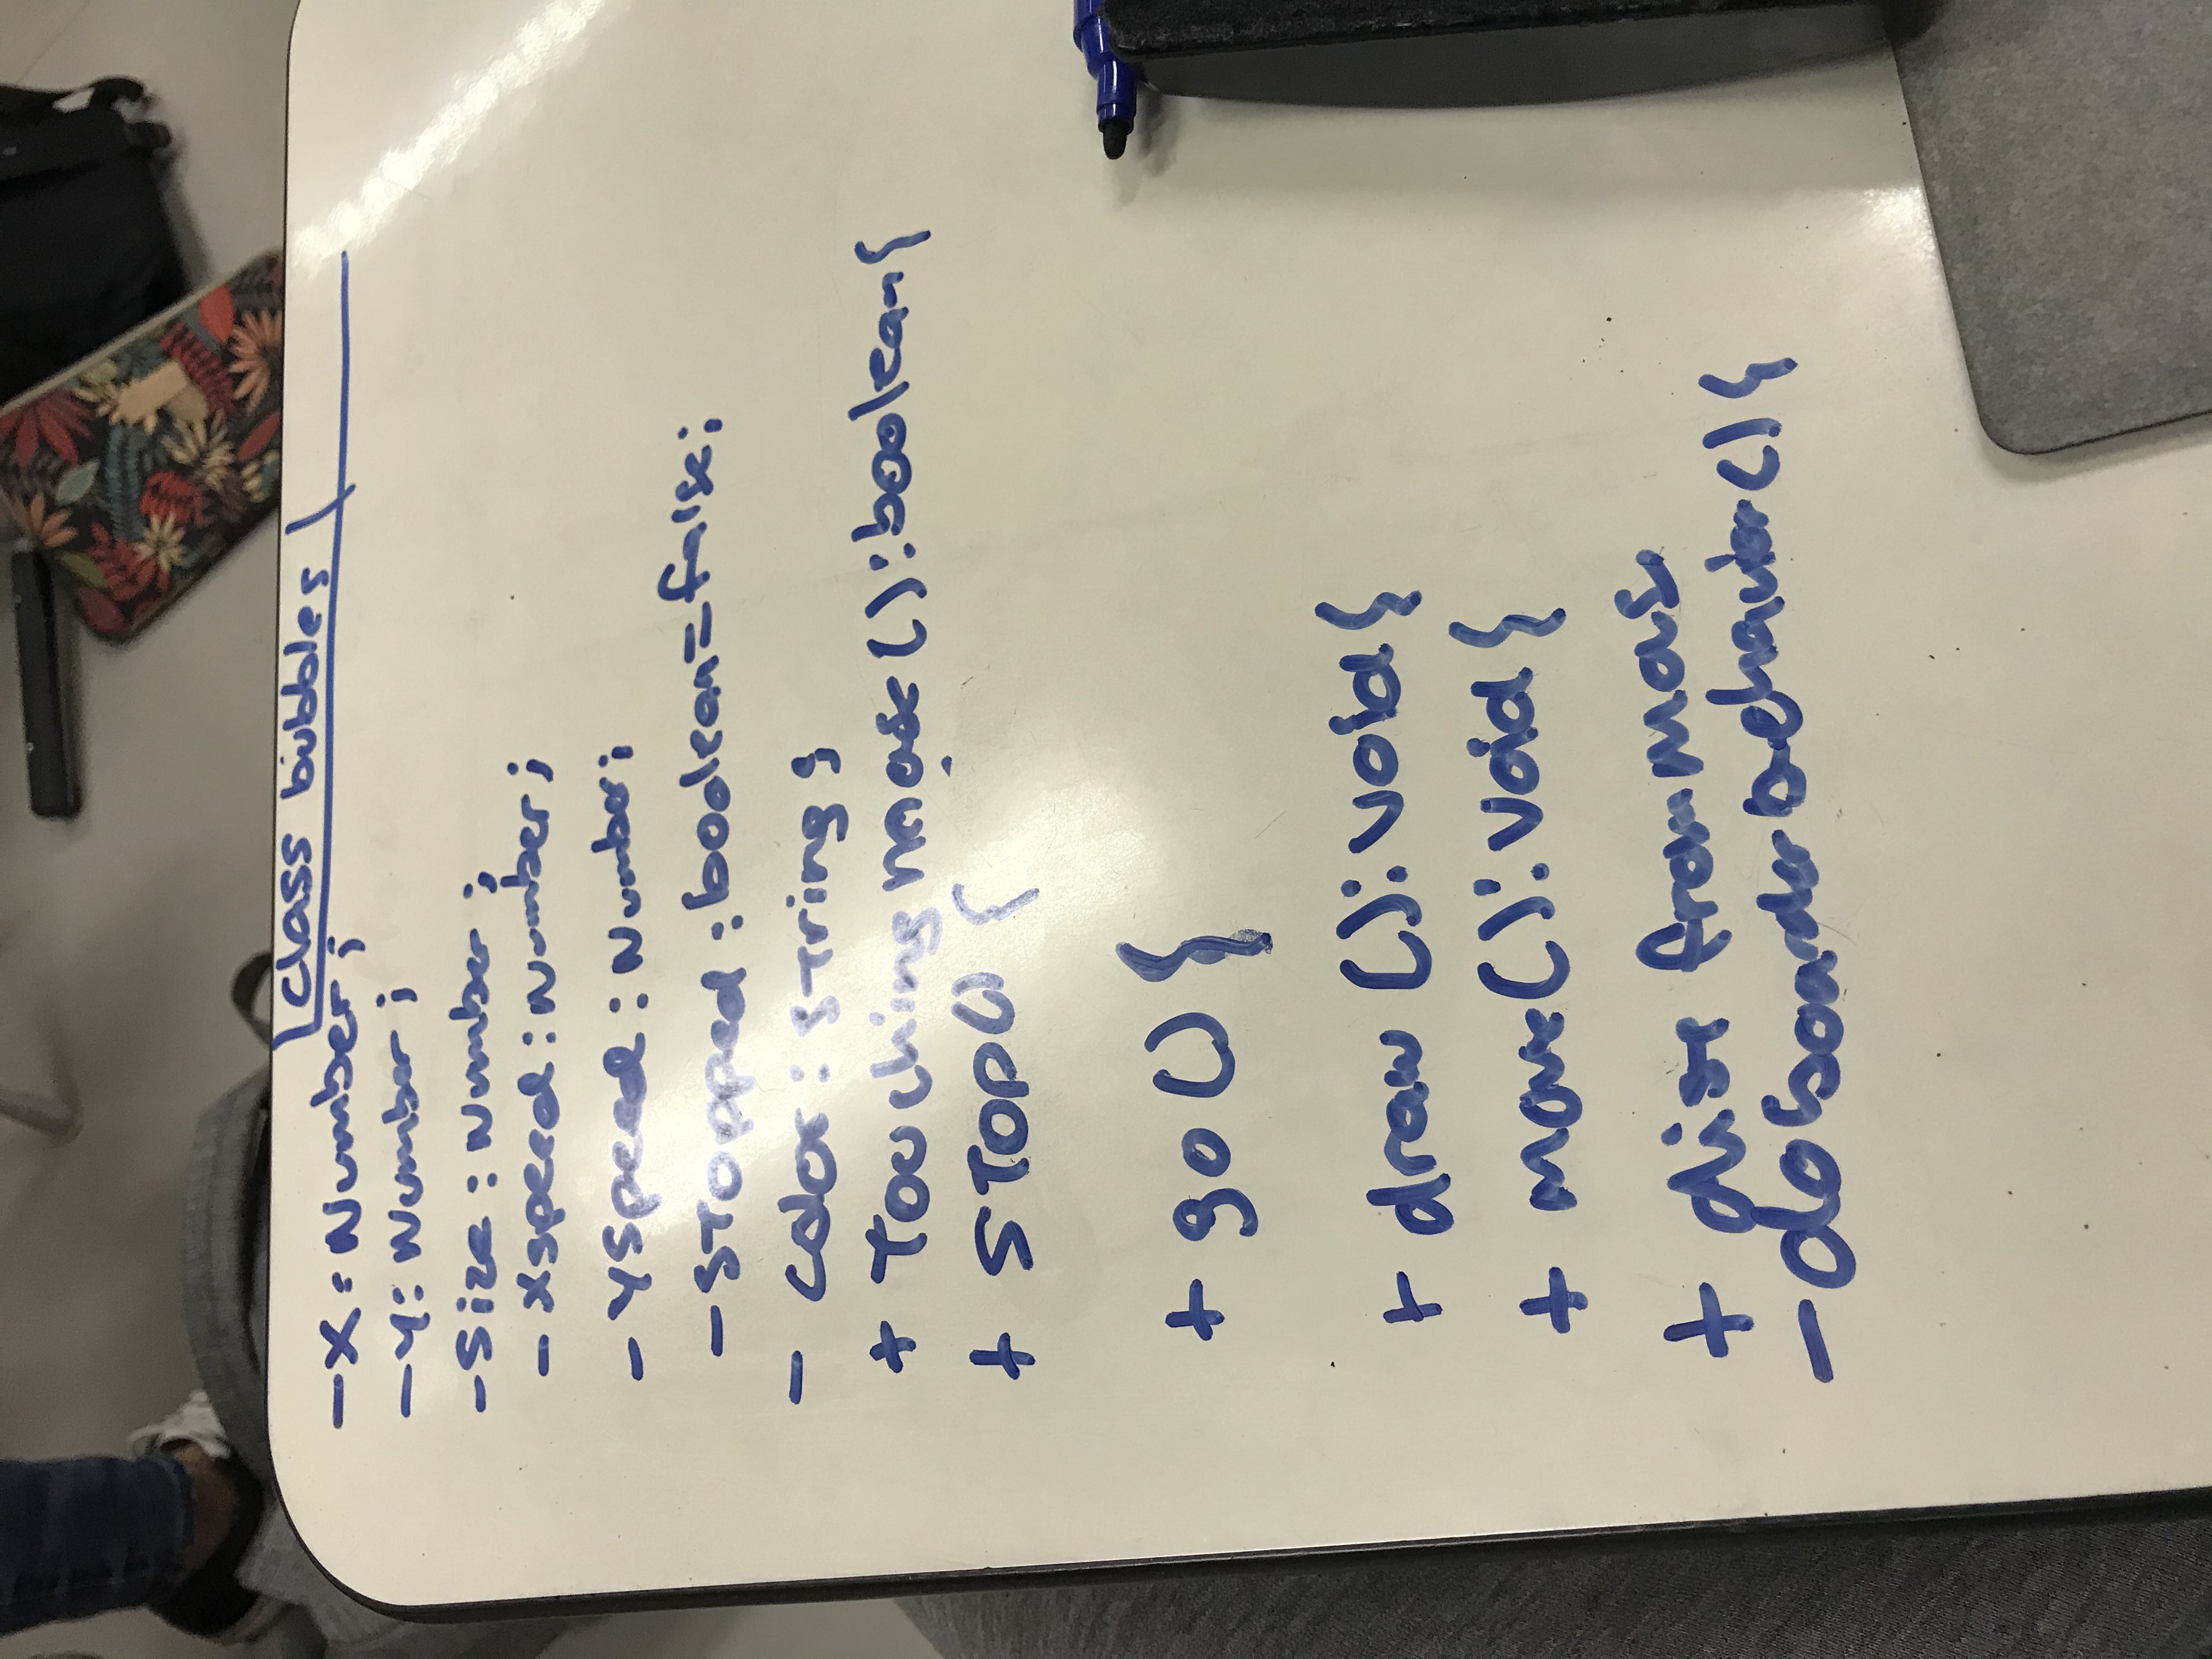 class bubbles
-X: Number;
-Y: Number;
-Size: Number;
- Xspeed: Number;
- YSpeed: Number;
- Stopped: boolean=false;
- color: string;
+ Touching mouse(): boolean{
+ STOP() {
+ go() {
+ draw(): void{
+ move(): void{
+ dist from Mas
- do boarder behavior() {